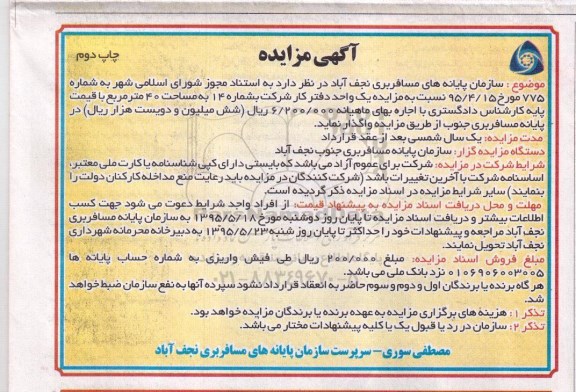 آگهی مزایده
چاپ دوم
موضوع : سازمان پایانه های مسافربری نجف آباد در نظر دارد به استناد مجوز شورای اسلامی شهر به شماره
۷۷۵ مورخ ۹۵/۴/۱۵ نسبت به مزایده یک واحد دفتر کار شرکت بشماره ۱۴۰ به مساحت ۴۰ مترمربع با قیمت
پایه کارشناس دادگستری با اجاره بهای ماهیانه ۶/۲۰۰/۰۰۰ ریال (شش میلیون و دویست هزار ریال) در
پایانه مسافربری جنوب از طریق مزایده واگذار نماید.
مدت مزایده: یک سال شمسی بعد از عقد قرارداد
دستگاه مزایده گزار: سازمان پایانه مسافربری جنوب نجف آباد
شرایط شرکت در مزایده: شرکت برای عموم آزاد می باشد که بایستی دارای کپی شناسنامه یا کارت ملی معتبر،
اساسنامه شرکت با آخرین تغییرات باشد (شرکت کنندگان در مزایده باید رعایت منع مداخله کارکنان دولت را
بنمایند) سایر شرایط مزایده در اسناد مزایده ذکر گردیده است.
مهلت و محل دریافت اسناد مزایده به پیشنهاد قیمت: از افراد واجد شرایط دعوت می شود جهت کسب
اطلاعات بیشتر و دریافت اسناد مزایده تا پایان روز دوشنبه مورخ ۱۳۹۵/۵/۱۸ به سازمان پایانه مسافربری
نجف آباد مراجعه و پیشنهادات خود را حداکثر تا پایان روز شنبه ۱۳۹۵/۵/۲۳ به دبیرخانه محرمانه شهرداری
نجف آباد تحویل نمایند.
مبلغ فروش اسناد مزایده: مبلغ ۲۰۰/۰۰۰ ریال طی فیش واریزی به شماره حساب پایانه ها
۰۱۰۶۹۰۶۰۰۳۰۰۵ نزد بانک ملی می باشد.
هر گاه برنده یا برندگان اول و دوم و سوم حاضر به انعقاد قرارداد نشود سپرده آنها به نفع سازمان ضبط خواهد
شد.
تذکر ۱: هزینه های برگزاری مزایده به عهده برنده یا برندگان مزایده خواهد بود.
تذکر ۲: سازمان در رد یا قبول یک یا کلیه پیشنهادات مختار می باشد.
مصطفی سوری – سرپرست سازمان پایانه های مسافربری نجف آباد